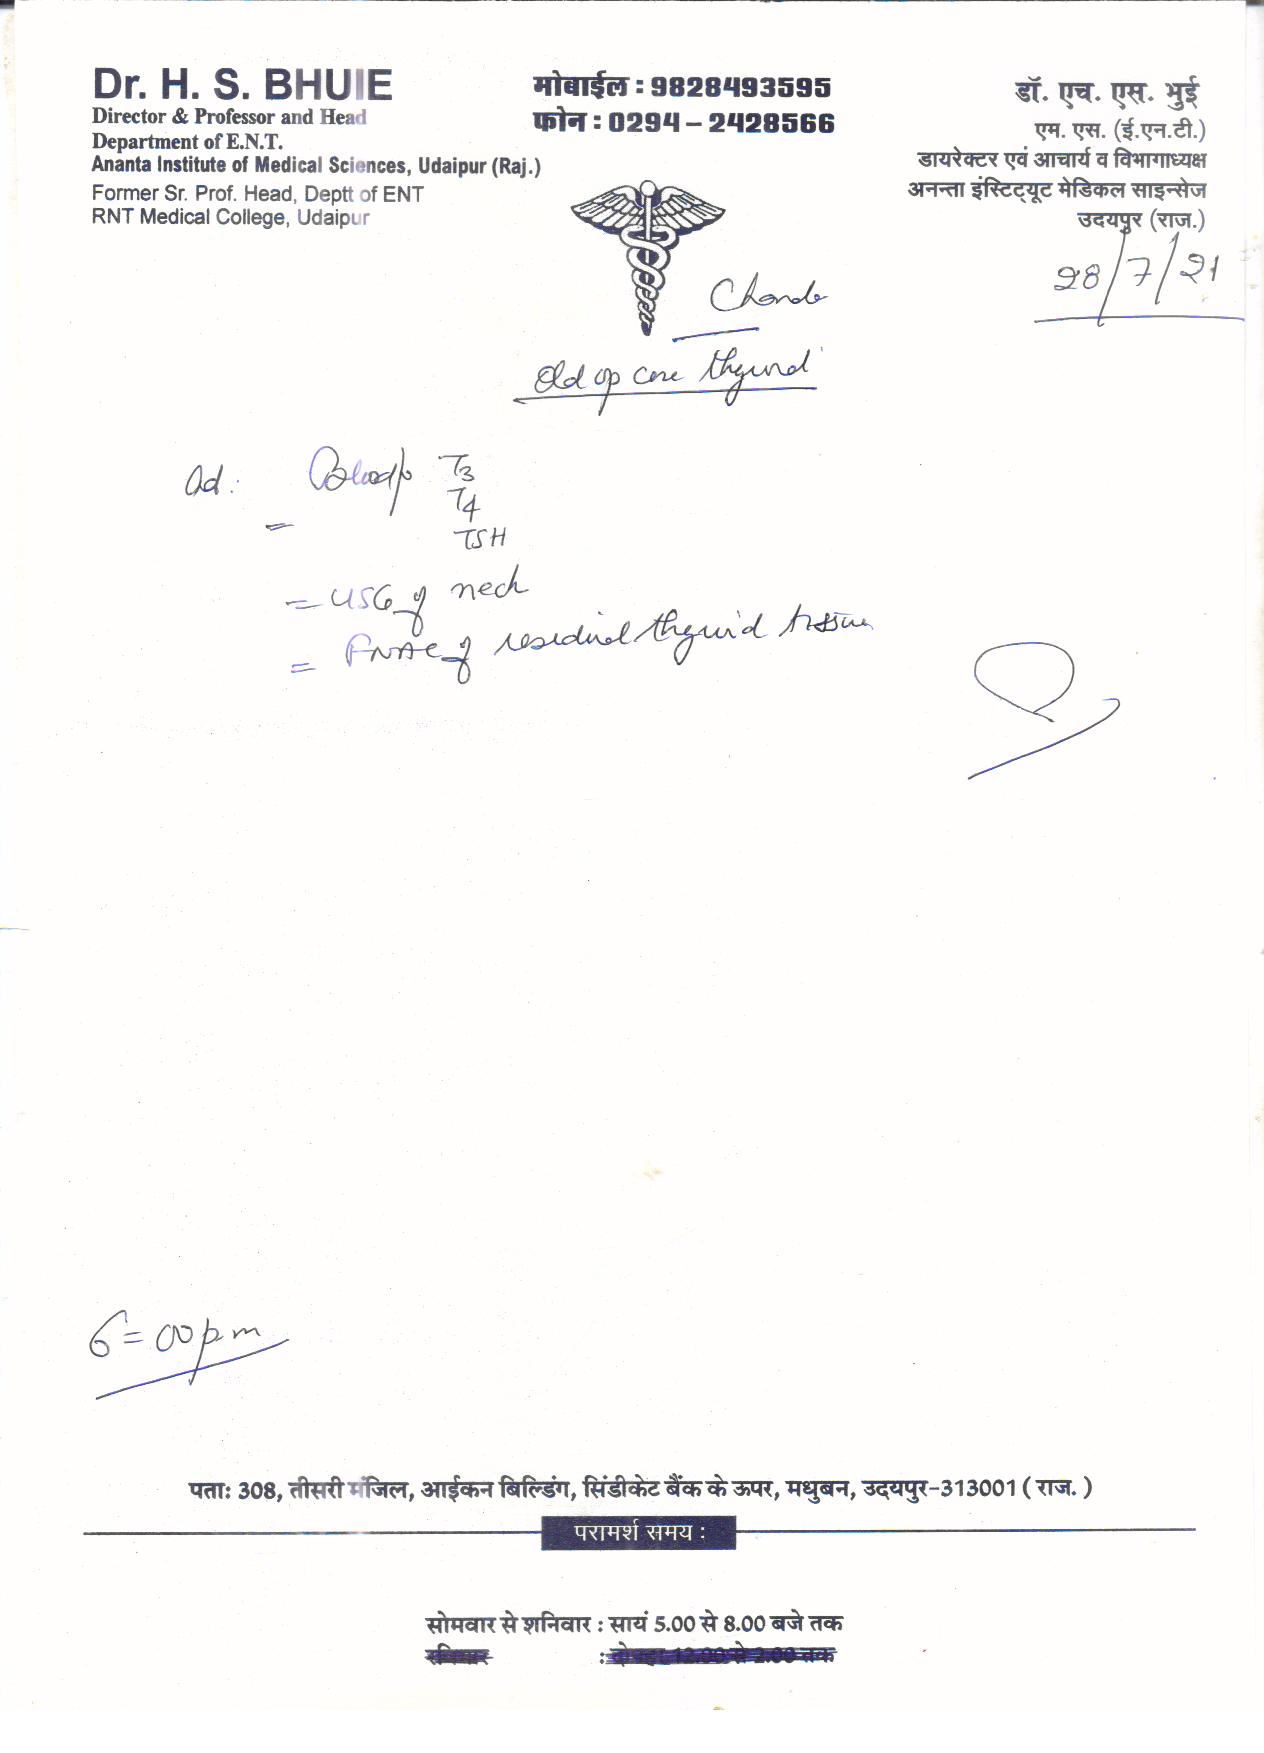 Dr. H. S. BHUIE
Director & Professor and Head
Department of E.N.T.
Ananta Institute of Medical Sciences, Udaipur (Raj.)
Former Sr. Prof. Head, Deptt of ENT
RNT Medical College, Udaipur
मोबाईल : 9828493595
फोन : 0294 – 2428566
डॉ. एच. एस. भुई
एम. एस. (ई.एन.टी.)
डायरेक्टर एवं आचार्य व विभागाध्यक्ष
अनन्ता इंस्टिट्यूट मेडिकल साइन्सेज
उदयपुर (राज.)
28/7/21
Old op case thyroid
Ad: Blood T3
T4
TSH
= USG of neck
= FNAC of residual thyroid tissue
6=00 pm
पताः 308, तीसरी मंजिल, आईकन बिल्डिंग, सिंडीकेट बैंक के ऊपर, मधुबन, उदयपुर-313001 ( राज. )
परामर्श समय :
सोमवार से शनिवार : सायं 5.00 से 8.00 बजे तक
रविवार : दोपहर 12.00 से 2.00 तक